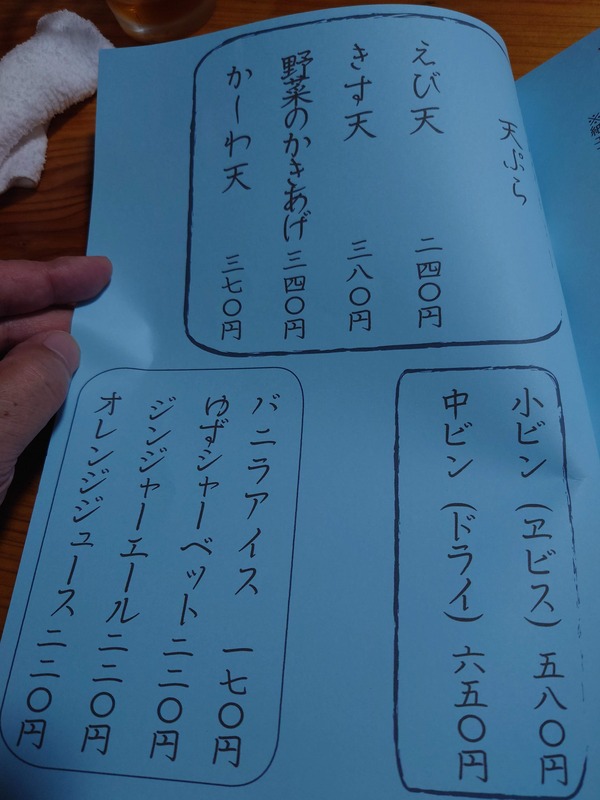 天ぷら
えび天 二四〇円
きす天 三八〇円
野菜のかきあげ 三四〇円
かしわ天 三七〇円
小ビン（ヱビス） 五八〇円
中ビン（ドライ） 六五〇円
バニラアイス 一七〇円
ゆずシャーベット 二二〇円
ジンジャーエール 二二〇円
オレンジジュース 二二〇円